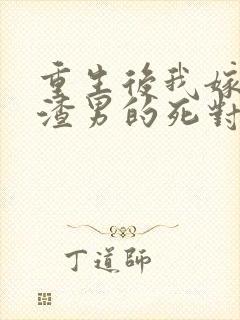 重生後我嫁
渣男的死對
丁道師